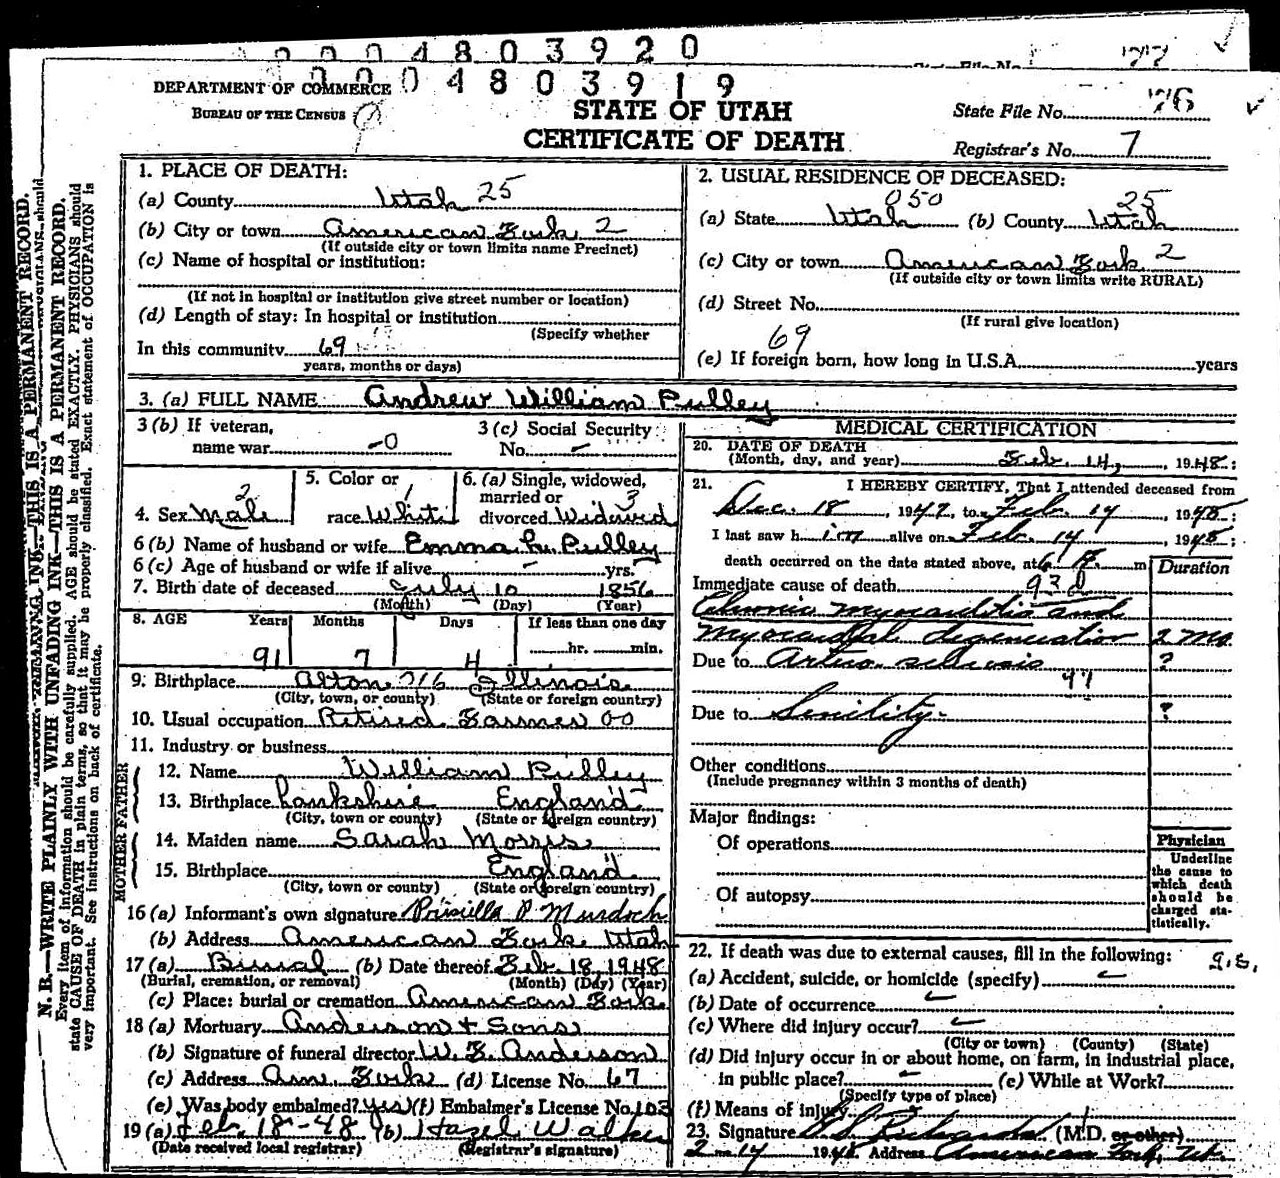 0004803920
0004803919
DEPARTMENT OF COMMERCE
BUREAU OF THE CENSUS
STATE OF UTAH
CERTIFICATE OF DEATH
State File No. 77
State File No. 76
Registrar's No. 7
N. B.—WRITE PLAINLY WITH UNFADING INK—THIS IS A PERMANENT RECORD.
Every item of information should be carefully supplied. AGE should be stated EXACTLY. PHYSICIANS should
state CAUSE OF DEATH in plain terms, so that it may be properly classified. Exact statement of OCCUPATION is
very important. See instructions on back of certificate.
1. PLACE OF DEATH:
(a) County Utah 25
(b) City or town American Fork 2
(If outside city or town limits name Precinct)
(c) Name of hospital or institution:
(If not in hospital or institution give street number or location)
(d) Length of stay: In hospital or institution
(Specify whether
In this community 69
years, months or days)
2. USUAL RESIDENCE OF DECEASED:
050 25
(a) State Utah (b) County Utah
(c) City or town American Fork 2
(If outside city or town limits write RURAL)
(d) Street No.
(If rural give location)
69
(e) If foreign born, how long in U.S.A. years
3. (a) FULL NAME Andrew William Pulley
3 (b) If veteran,
name war -0
3 (c) Social Security
No. -
4. Sex Male 2
5. Color or
race White 1
6. (a) Single, widowed,
married or 3
divorced Widowed
6 (b) Name of husband or wife Emma L. Pulley
6 (c) Age of husband or wife if alive - yrs.
7. Birth date of deceased July 10 1856
(Month) (Day) (Year)
8. AGE Years Months Days If less than one day
91 7 4 hr. min.
9. Birthplace Alton 716 Illinois
(City, town, or county) (State or foreign country)
10. Usual occupation Retired Farmer 00
11. Industry or business
FATHER
12. Name William Pulley
13. Birthplace Lankshire England
(City, town or county) (State or foreign country)
MOTHER
14. Maiden name Sarah Morris
15. Birthplace England
(City, town or county) (State or foreign country)
16 (a) Informant's own signature Prisilla P. Murdoch
(b) Address American Fork Utah
17 (a) Burial (b) Date thereof Feb. 18, 1948
(Burial, cremation, or removal) (Month) (Day) (Year)
(c) Place: burial or cremation American Fork
18 (a) Mortuary Anderson & Sons
(b) Signature of funeral director W. E. Anderson
(c) Address Am. Fork (d) License No. 67
(e) Was body embalmed? yes (f) Embalmer's License No. 103
19 (a) Feb. 18-48 (b) Hazel Walker
(Date received local registrar) (Registrar's signature)
MEDICAL CERTIFICATION
20. DATE OF DEATH
(Month, day, and year) Feb. 14, 1948;
21. I HEREBY CERTIFY, That I attended deceased from
Dec. 18, 1947, to Feb. 14, 1948;
I last saw h im alive on Feb. 14, 1948;
death occurred on the date stated above, at 6 P. m
Duration
Immediate cause of death 93d
Chronic myocarditis and
myocardial degeneration 2 mo.
Due to Arterio sclerosis ?
97
Due to Senility- ?
Other conditions
(Include pregnancy within 3 months of death)
Major findings:
Of operations
Of autopsy
Physician
Underline
the cause to
which death
should be
charged sta-
tistically.
22. If death was due to external causes, fill in the following:
(a) Accident, suicide, or homicide (specify)
(b) Date of occurrence
(c) Where did injury occur?
(City or town) (County) (State)
(d) Did injury occur in or about home, on farm, in industrial place,
in public place? (e) While at Work?
(Specify type of place)
(f) Means of injury
23. Signature Richards (M.D. or other)
2-14 1948 Address American Fork, Ut.